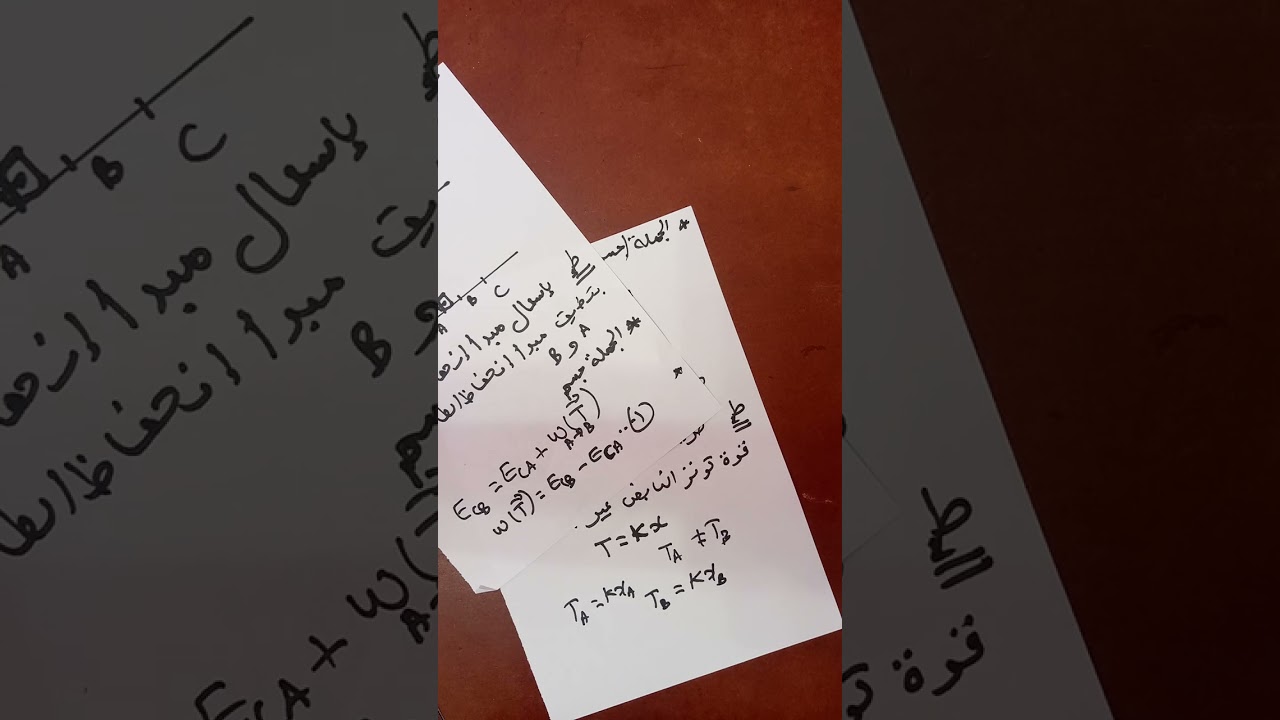 A B C
ط1 بإستعمال مبدأ انحفا
بتطبيق مبدأ انحفاظ الطا
A و B
* الجملة جسم
E_CB = E_CA + W_A→B(T⃗)
W(T⃗) = E_CB - E_CA ...(1)
* الجملة (جسـ
*
قوة توتر النابض غير
T = Kx
T_A ≠ T_B
T_A = Kx_A T_B = Kx_B